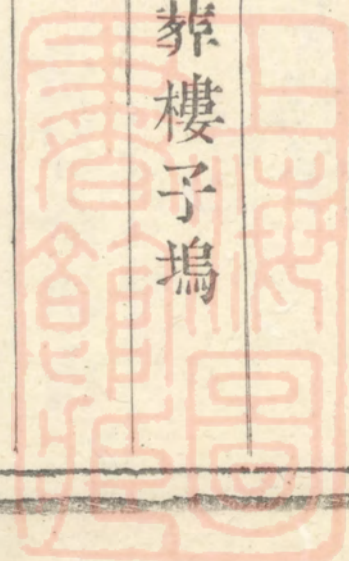 葬樓子塢
上海圖書館藏